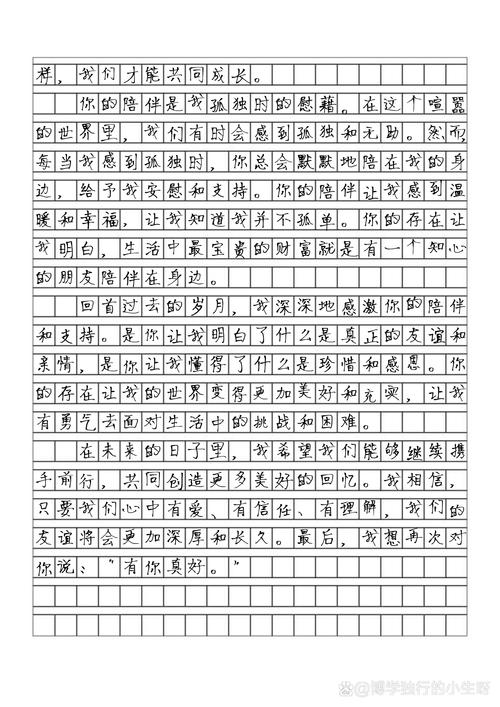 样，我们才能共同成长。
你的陪伴是我孤独时的慰藉。在这个喧嚣
的世界里，我们有时会感到孤独和无助。然而，
每当我感到孤独时，你总会默默地陪在我的身
边，给予我安慰和支持。你的陪伴让我感到温
暖和幸福，让我知道我并不孤单。你的存在让
我明白，生活中最宝贵的财富就是有一个知心
的朋友陪伴在身边。
回首过去的岁月，我深深地感激你的陪伴
和支持。是你让我明白了什么是真正的友谊和
亲情，是你让我懂得了什么是珍惜和感恩。你
的存在让我的世界变得更加美好和充实，让我
有勇气去面对生活中的挑战和困难。
在未来的日子里，我希望我们能够继续携
手前行，共同创造更多美好的回忆。我相信，
只要我们心中有爱、有信任、有理解，我们的
友谊将会更加深厚和长久。最后，我想再次对
你说：“有你真好。”
@博学独行的小生呀